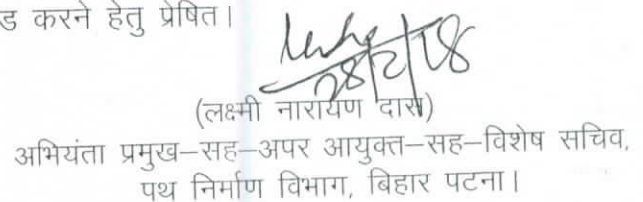 ड करने हेतु प्रेषित।
28/2/18
(लक्ष्मी नारायण दास)
अभियंता प्रमुख–सह–अपर आयुक्त–सह–विशेष सचिव,
पथ निर्माण विभाग, बिहार पटना।